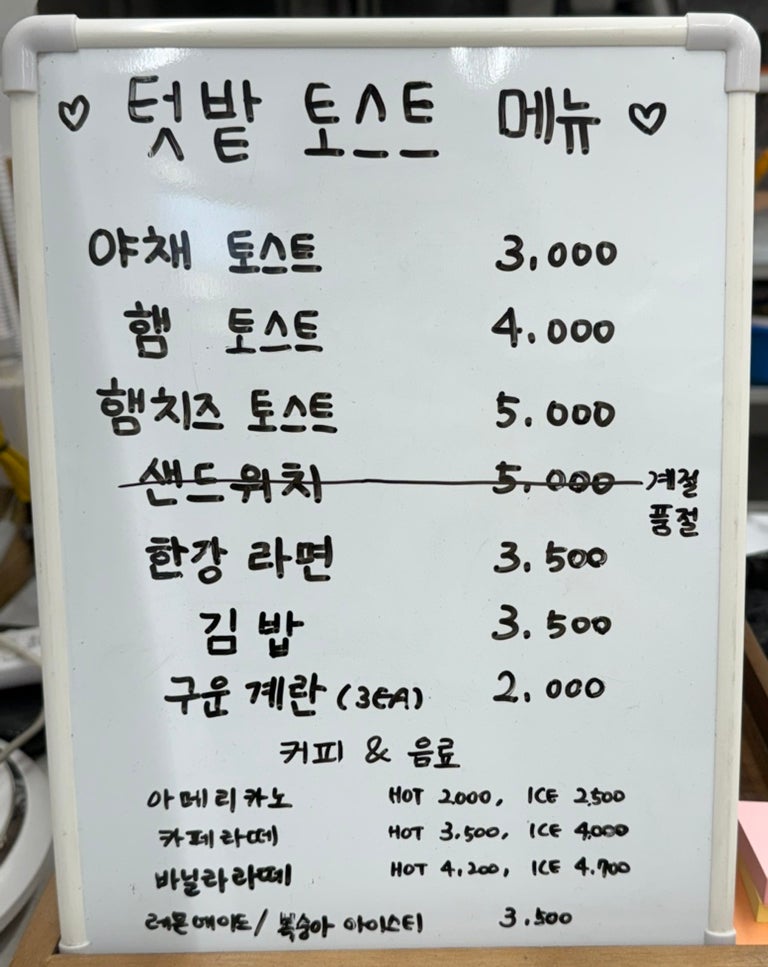 ♡ 텃밭 토스트 메뉴 ♡
야채 토스트 3,000
햄 토스트 4,000
햄치즈 토스트 5,000
샌드위치 5,000 계절
품절
한강 라면 3,500
김밥 3,500
구운계란 (3EA) 2,000
커피 & 음료
아메리카노 HOT 2,000, ICE 2,500
카페라떼 HOT 3,500, ICE 4,000
바닐라라떼 HOT 4,200, ICE 4,700
레몬에이드/복숭아 아이스티 3,500